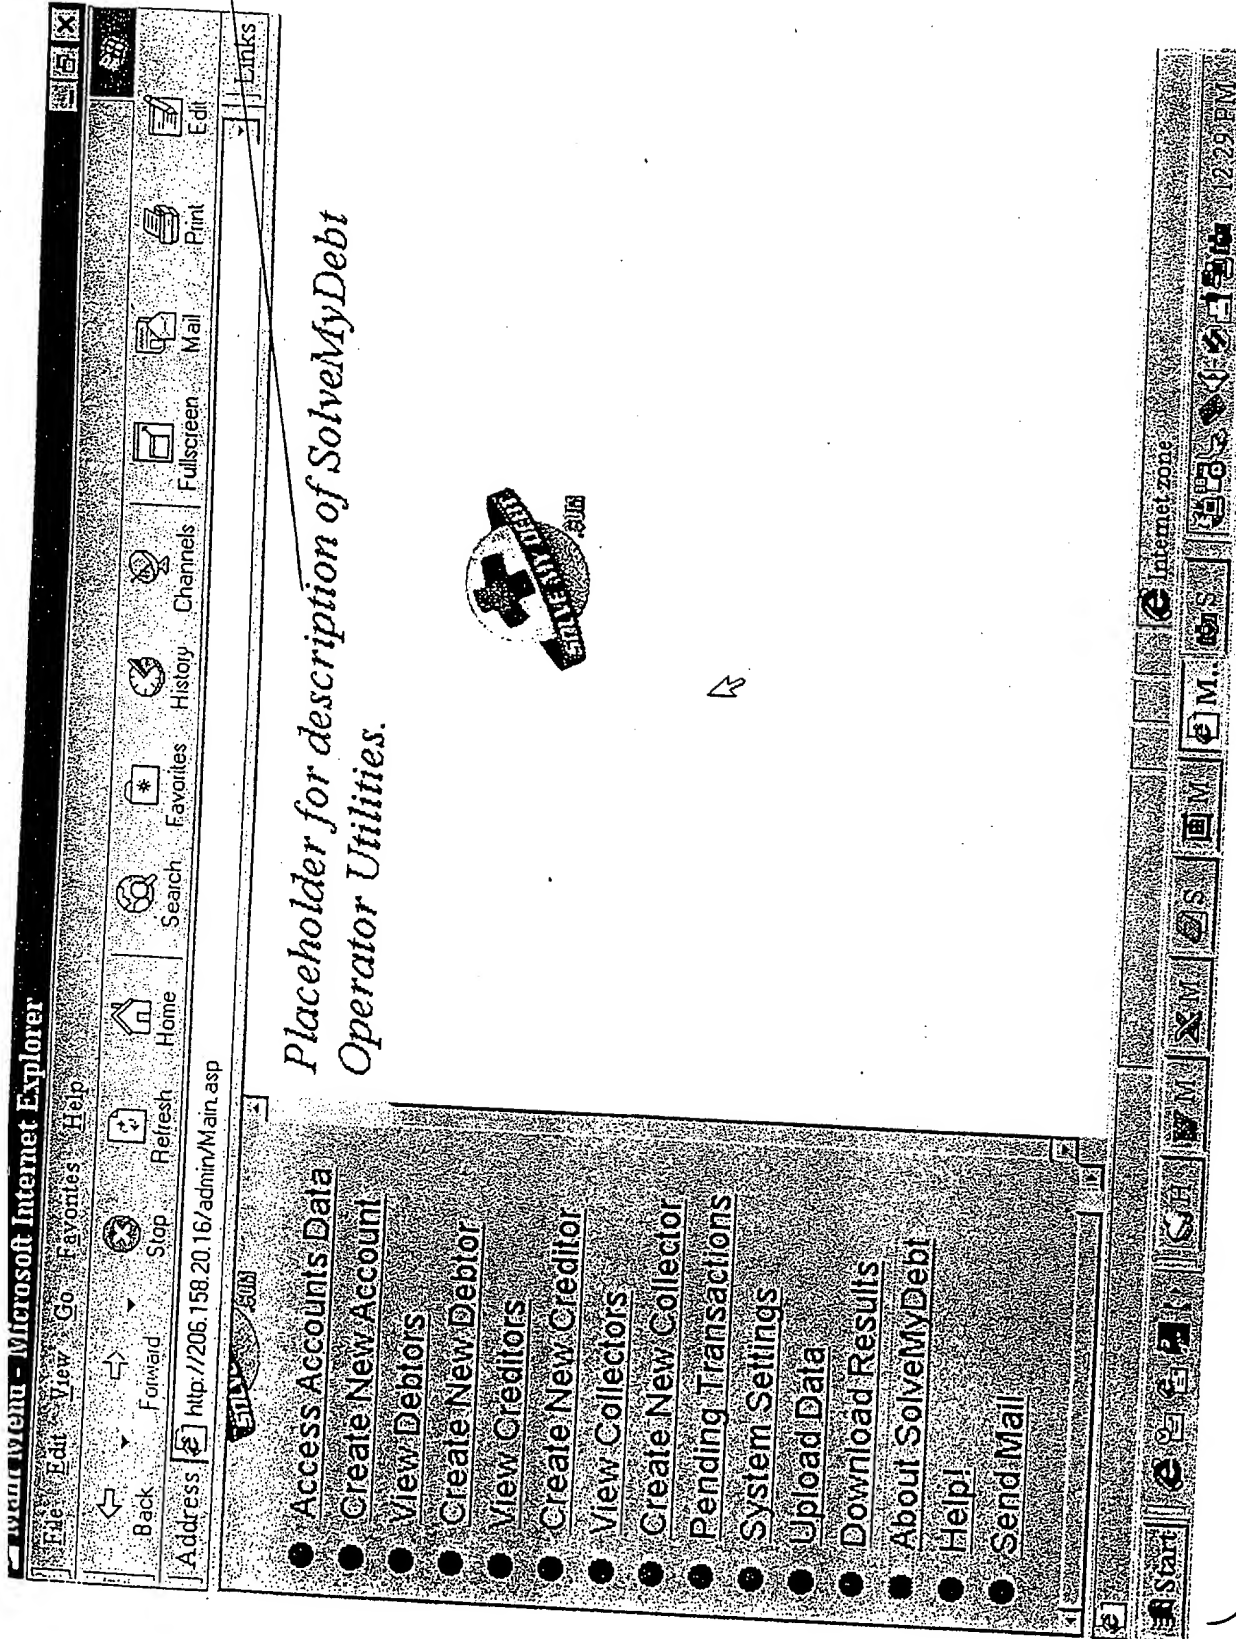 Main Menu - Microsoft Internet Explorer
File Edit View Go Favorites Help
Back Forward Stop Refresh Home Search Favorites History Channels Fullscreen Mail Print Edit
Address http://206.158.20.16/admin/Main.asp Links
Access Accounts Data
Create New Account
View Debtors
Create New Debtor
View Creditors
Create New Creditor
View Collectors
Create New Collector
Pending Transactions
System Settings
Upload Data
Download Results
About SolveMyDebt
Help!
Send Mail
Placeholder for description of SolveMyDebt
Operator Utilities.
SOLVE MY DEBT
.COM
Internet zone
Start H M M S M M.. S 12:29 PM